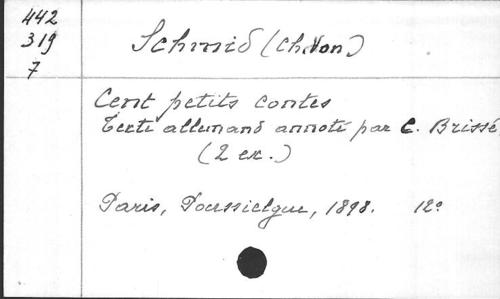 442
319
7
Schmid (Ch. Von)
Cent petits contes
Texte allemand annoté par C. Brissé
(2 ex.)
Paris, Poussielgue, 1898. 12°